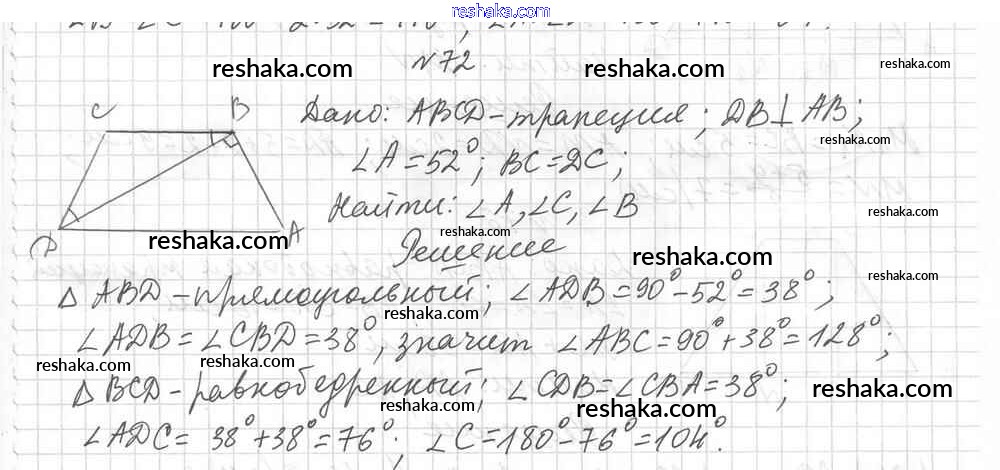 reshaka.com
∠B = ∠C = 180° - 2·32° = 116°;
№72
reshaka.com reshaka.com reshaka.com
C B Дано: ABCD-трапеция; DB⊥AB;
reshaka.com
∠A=52°; BC=DC;
reshaka.com
Найти: ∠A, ∠C, ∠B
reshaka.com
D A reshaka.com reshaka.com
Решение
reshaka.com reshaka.com
△ ABD-прямоугольный; ∠ADB=90°-52°=38°;
reshaka.com
∠ADB=∠CBD=38°, значит ∠ABC=90°+38°=128°;
reshaka.com reshaka.com reshaka.com
△ BCD-равнобедренный; ∠CDB=∠CBA=38°;
reshaka.com reshaka.com reshaka.com
∠ADC= 38°+38°=76°; ∠C=180°-76°=104°.
reshaka.com reshaka.com